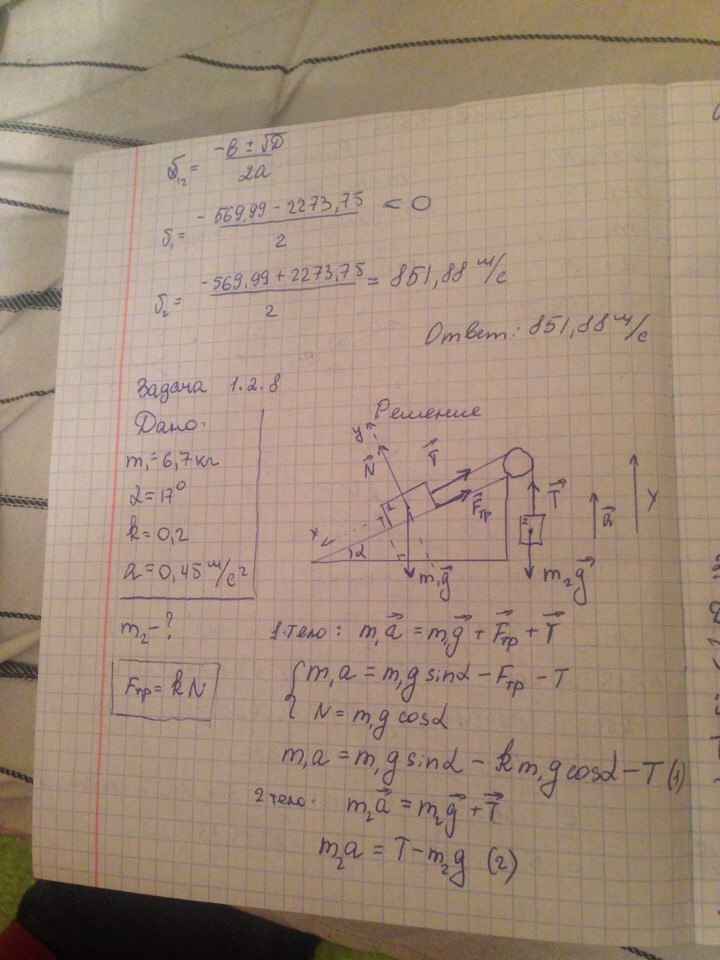 v₁₂ = (-b ± √D) / 2a
v₁ = (-569,99 - 2273,75) / 2 < 0
v₂ = (-569,99 + 2273,75) / 2 = 851,88 м/с
Ответ: 851,88 м/с
Задача 1.2.8
Дано:
m₁ = 6,7 кг
α = 17°
k = 0,2
a = 0,45 м/с²
m₂ - ?
Fтр = kN
Решение
y
N⃗
T⃗
F⃗тр
x
α
m₁g⃗
T⃗
2
m₂g⃗
a⃗
y
1 тело: m₁a⃗ = m₁g⃗ + F⃗тр + T⃗
m₁a = m₁g sinα - Fтр - T
N = m₁g cosα
m₁a = m₁g sinα - km₁g cosα - T (1)
2 тело: m₂a⃗ = m₂g⃗ + T⃗
m₂a = T - m₂g (2)